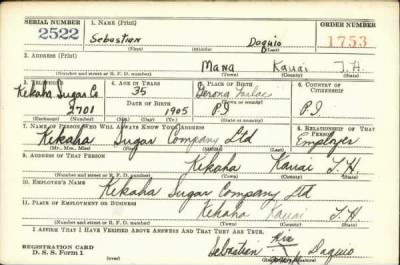 SERIAL NUMBER 1. NAME (Print) ORDER NUMBER
2522 Sebastian Daquio 1753
(First) (Middle) (Last)
2. ADDRESS (Print)
Mana Kauai T.H.
(Number and street or R. F. D. number) (Town) (County) (State)
3. TELEPHONE 4. AGE IN YEARS 5. PLACE OF BIRTH 6. COUNTRY OF CITIZENSHIP
Kekaha Sugar Co. 35 Gerona Tarlac
DATE OF BIRTH (Town or county)
2701 1905 P.I. P.I.
(Exchange) (Number) (Mo.) (Day) (Yr.) (State or country)
7. NAME OF PERSON WHO WILL ALWAYS KNOW YOUR ADDRESS 8. RELATIONSHIP OF THAT PERSON
Kekaha Sugar Company Ltd Employer
(Mr., Mrs., Miss) (First) (Middle) (Last)
9. ADDRESS OF THAT PERSON
Kekaha Kauai T.H.
(Number and street or R. F. D. number) (Town) (County) (State)
10. EMPLOYER'S NAME
Kekaha Sugar Company Ltd
11. PLACE OF EMPLOYMENT OR BUSINESS
Kekaha Kauai T.H.
(Number and street or R. F. D. number) (Town) (County) (State)
I AFFIRM THAT I HAVE VERIFIED ABOVE ANSWERS AND THAT THEY ARE TRUE.
REGISTRATION CARD
D. S. S. Form 1 Sebastian His mark Daquio
(over)